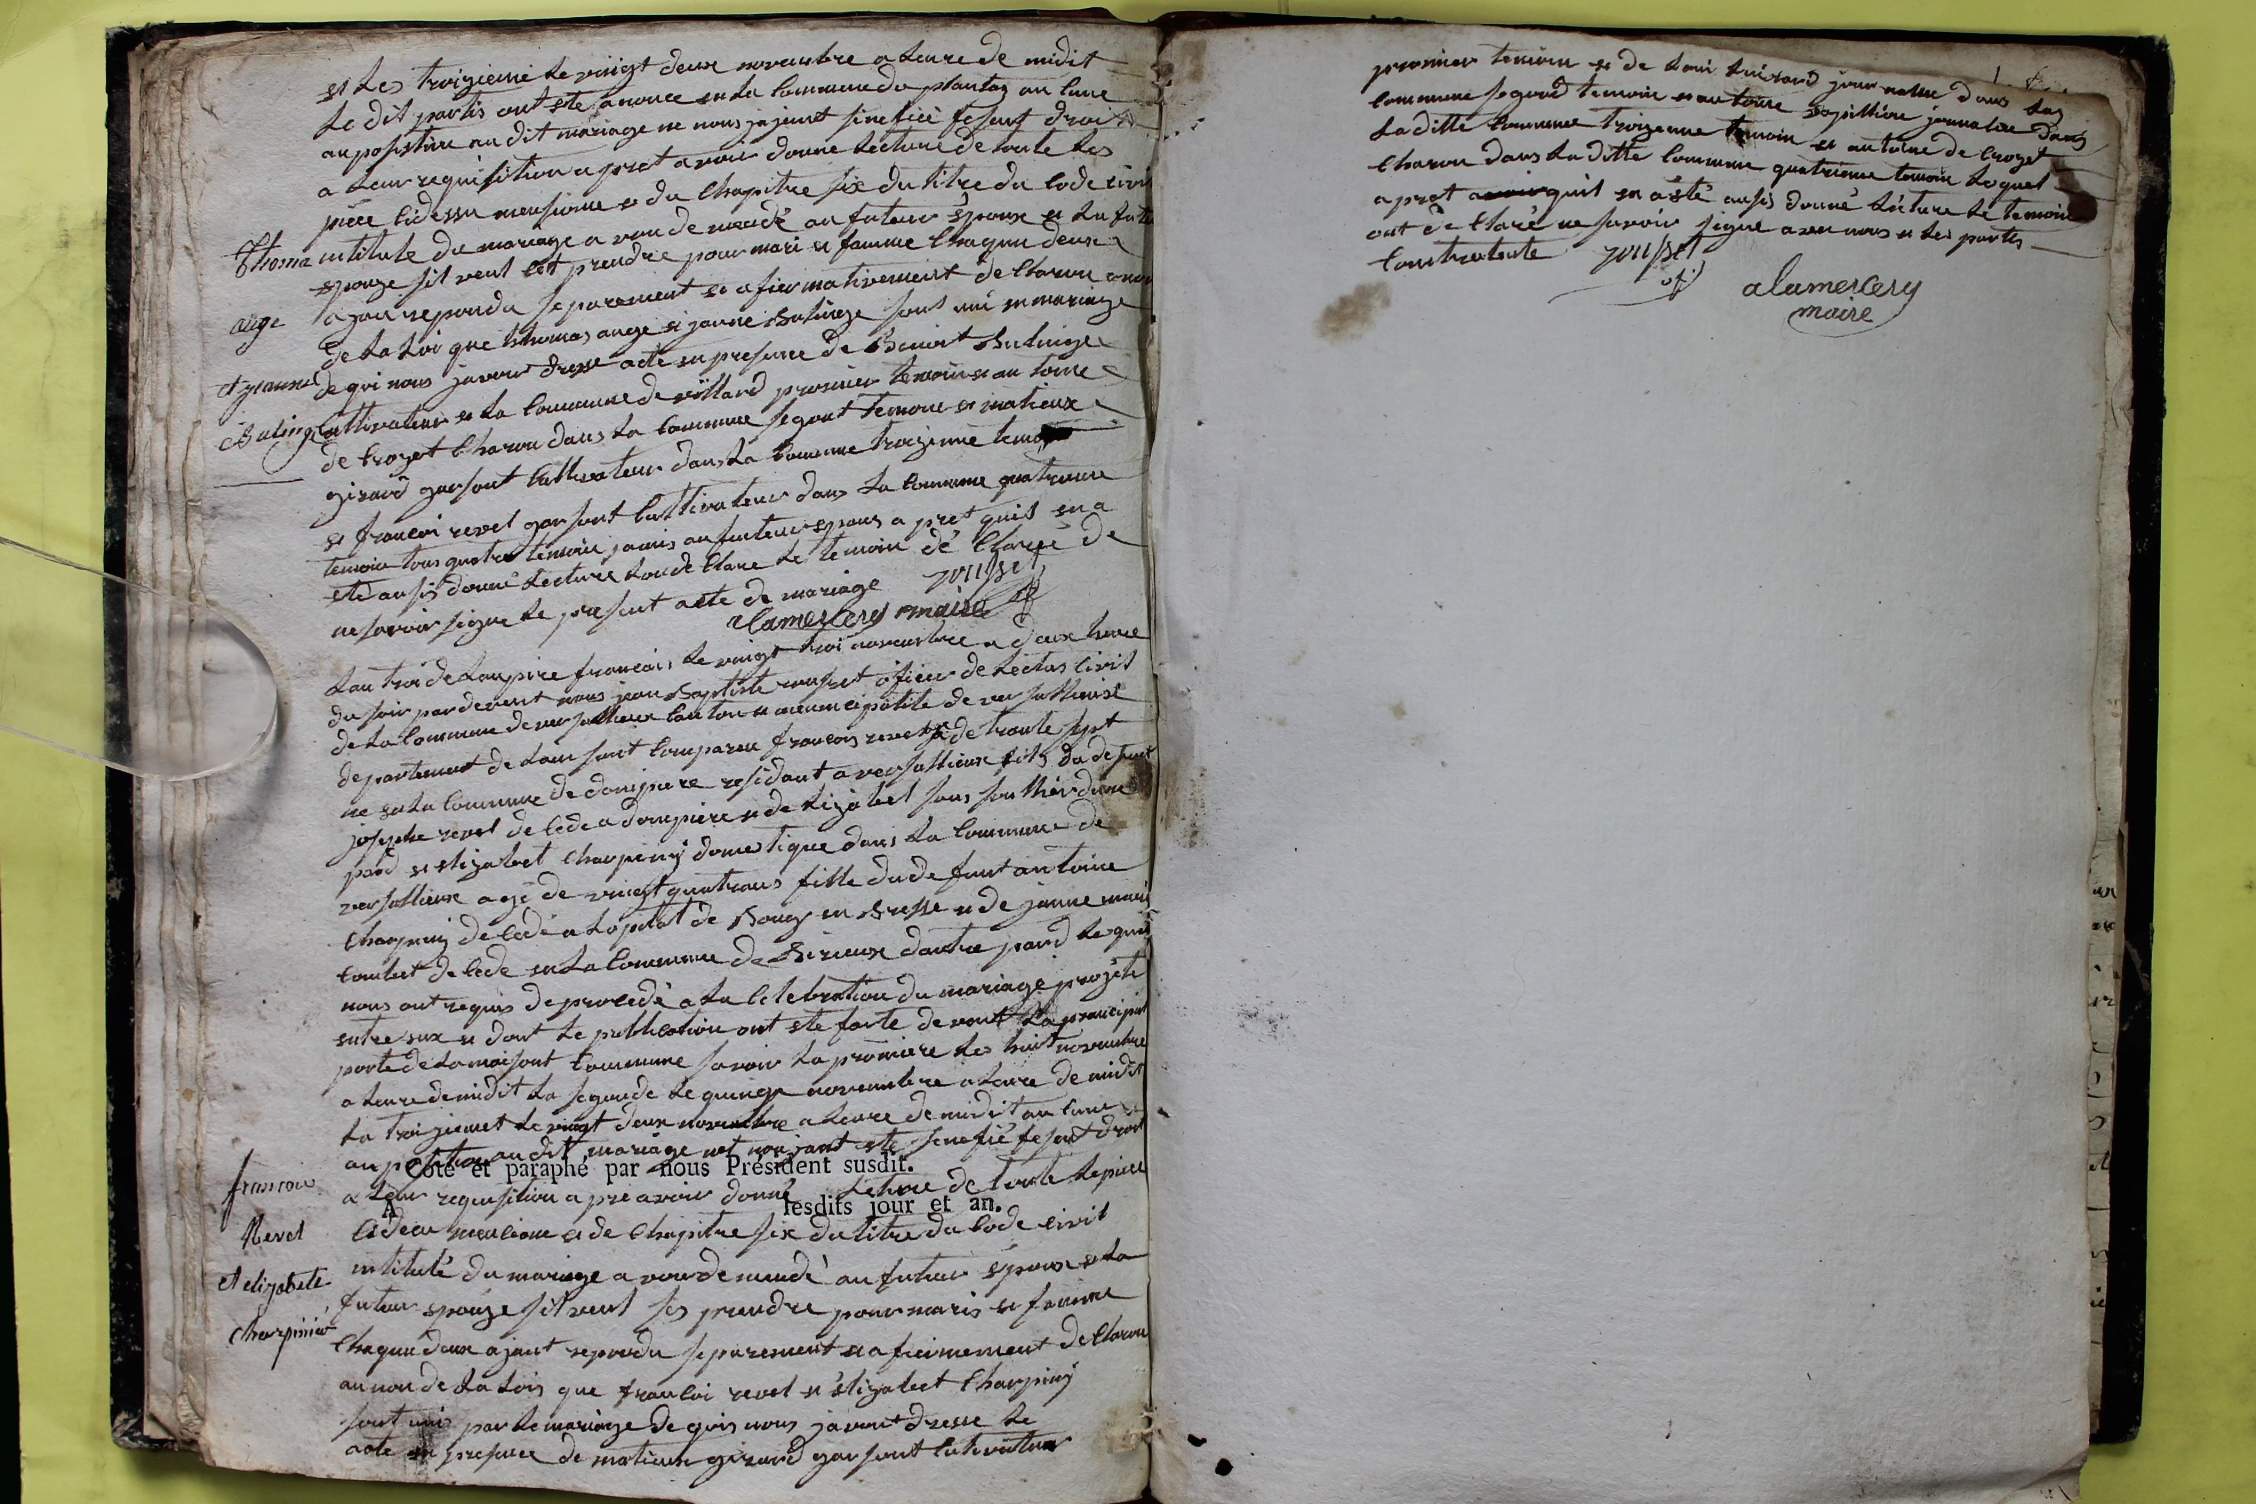 et les troizieme le vingt deux novembre a leure de midit
le dit partis ont ete anonce en la commune du plantay au cune
au posistion au dit mariage ne nous jajeint sinefieé fesent droit
a leur requisition a pret avoir donne lecture de toute les
piece cidessu mensionne et du chapitre six du titre du code civil
Thoma
intitule du mariage a von demendé au futeur épouse et la futu
epouze sil veul cet prendre pour mari et famme chaqun deux
ange
a jant repondu separement et afirmativement declaron a non
de la loi que thomas ange et janne Buhinge sont uni en mariage
et jeanne
de qoi nous javons dresse acte en presence de Benoit Buhinge
Buhinge
cultivateur en la commune de villard promier temoin et antoine
de crozet charon dans la commune segont temoin et matieux
girard garsont cultivateur dans la commune troizieme temoin
et francoi revel garsont cultivateur dans la commune quatrieme
temoin tous quatre temoin jamis au futeur epous a pret quil en a
ete ausis donné lecture lon declare le temoin dé claré de
ne savoir signe le present acte de mariage rousset
alamercery maire
Lan troi de lanpire francois le vingt troi novembre a deux heure
du soir pardevent nous jean Baptiste rousset oficier de lectas civil
de la commune de versallieux canton et municipalite de versallieux
departement de lain sont comparu francois revel agé de trante sept
né en la commune de donpiere residant a versallieux fils du defunt
josephe revel decede a donpiere et de lizabet sous southier dune
pard et elizabet charpiny domestique dans la commune de
versallieux agé de vingt quatre ans fille du defunt antoine
charpiny decedé a lopital de Bourg en Bresse et de janne marie
combet decede en la commune de Birieux dautre pard lequel
nous ont requis de procedé a la celebration du mariage projeté
entre eux et dont le publication ont ete faite devant la prancipal
porte de la maisont commune savoir la promiere les huit novembre
a leure de midit la segonde le quinze novembre a leure de midit
la troiziemet le vingt deux novembre a leure de midit au cune
au position au dit mariage net nou jant ete sinefié fesant droit
Coté et paraphé par nous Président susdit.
francoi
a leur requisition a pre avoir donné lecture de toute le piece
A lesdits jour et an.
Revel
cideau mencione et de chapitre six du titre du code civil
intitulé du mariage a von demendé au futeur epoux et la
et elizabete
futeur epouze sil veul ses prendre pour maris et famme
charpinié
chaqun deux ajant repondu separement et afirmement declaron
au non de la lois que francoi revel et élizabet charpiny
sont unis par le mariage de quis nous javont dresse le
acte en presence de matieux girard garsont cultivateur
promier temoin et de loui guirard journalie dans la
commune segond temoin et antoine papillion journalie dans
la ditte commune troizieme temoin et antoine de crozet
charon dans la ditte commune quatrieme temoin lequel
apret quil en a été ausis donné lecture le temoin
ont dé claré ne savoir signe avec nous et les partis
contratente rousset
ofi
alamercery
maire